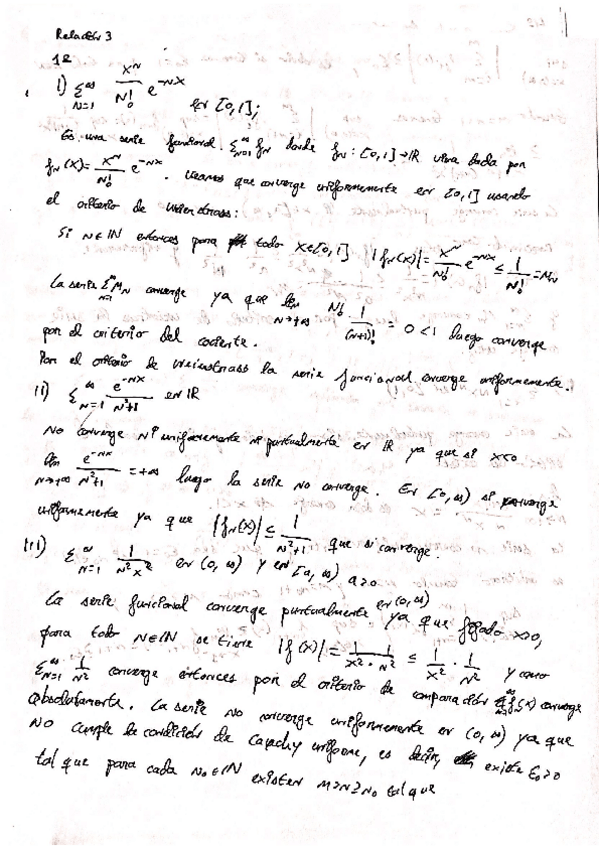 Relación 3
1º
1) Σ_{N=1}^∞ x^N/N! e^{-Nx} en [0,1];
Es una serie funcional Σ_{N=1}^∞ f_N donde f_N: [0,1]→IR viene dada por
f_N(x) = x^N/N! e^{-Nx}. Veamos que converge uniformemente en [0,1] usando
el criterio de Weierstrass:
Si N∈IN entonces para todo x∈[0,1] |f_N(x)| = x^N/N! e^{-Nx} ≤ 1/N! = M_N
La serie Σ_{N=1}^∞ M_N converge ya que lim_{N→+∞} N! · 1/(N+1)! = 0 < 1 luego converge
por el criterio del cociente.
Por el criterio de Weierstrass la serie funcional converge uniformemente.
11) Σ_{N=1}^∞ e^{-Nx}/N²+1 en IR
No converge ni uniformemente ni puntualmente en IR ya que si x<0
lim_{N→+∞} e^{-Nx}/N²+1 = +∞ luego la serie no converge. En [0,∞) si converge
uniformemente ya que |f_N(x)| ≤ 1/N²+1 que si converge.
111) Σ_{N=1}^∞ 1/N²x² en (0,∞) y en [a,∞) a>0
La serie funcional converge puntualmente en (0,∞) ya que fijado x>0,
para todo N∈IN se tiene |f(x)| = 1/x² · 1/N² ≤ 1/x² · 1/N² y como
Σ_{N=1}^∞ 1/N² converge entonces por el criterio de comparación Σ f_N(x) converge
absolutamente. La serie no converge uniformemente en (0,∞) ya que
no cumple la condición de Cauchy uniforme, es decir, existe ε₀>0
tal que para cada N₀∈IN existen M>N≥N₀ tal que